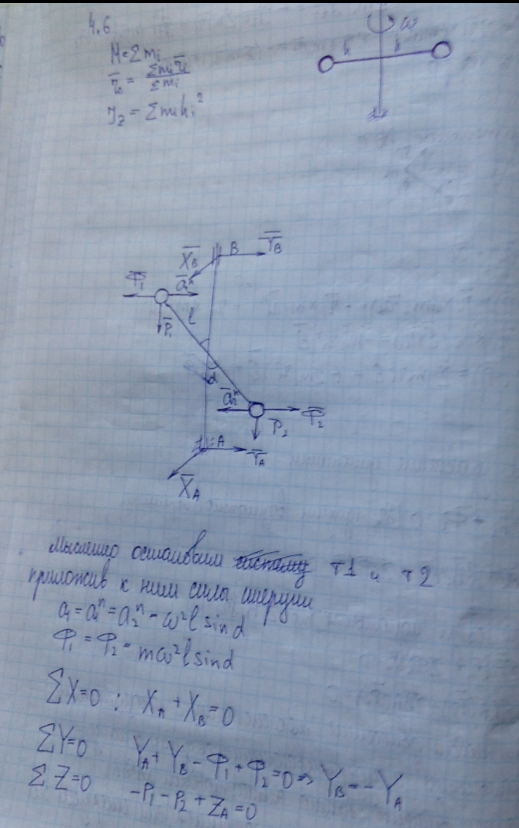 4.6
M = Σmᵢ
r̄c = Σmᵢr̄ᵢ / Σmᵢ
Jz = Σmᵢhᵢ²
ω
h h
B Ȳ_B
X̄_B
Φ̄₁ ā₁ⁿ
P̄₁ l
α
ā₂ⁿ Φ̄₂
P̄₂
A Ȳ_A
X̄_A
Мысленно остановим систему т1 и т2
приложив к ним силы инерции
a₁ = a₁ⁿ = a₂ⁿ = ω²l sinα
Φ₁ = Φ₂ = mω²l sinα
ΣX=0 : X_A + X_B = 0
ΣY=0 Y_A + Y_B - Φ₁ + Φ₂ = 0 ⇒ Y_B = - Y_A
ΣZ=0 -P₁ - P₂ + Z_A = 0